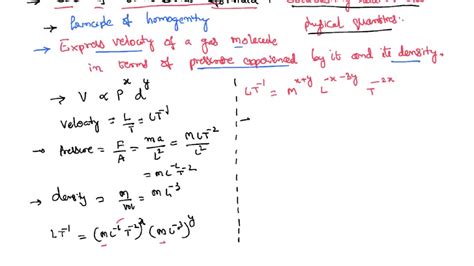 → Principle of homogenity
physical quantities.
→ Express velocity of a gas molecule
in terms of pressure experienced by it and its density.
→ V ∝ P^x d^y
velocity = L/T = LT^-1
→ Pressure = F/A = ma/L^2 = MLT^-2/L^2
= ML^-1T^-2
→ density = m/vol = ML^-3
LT^-1 = (ML^-1T^-2)^x (ML^-3)^y
LT^-1 = M^x+y L^-x-3y T^-2x
→